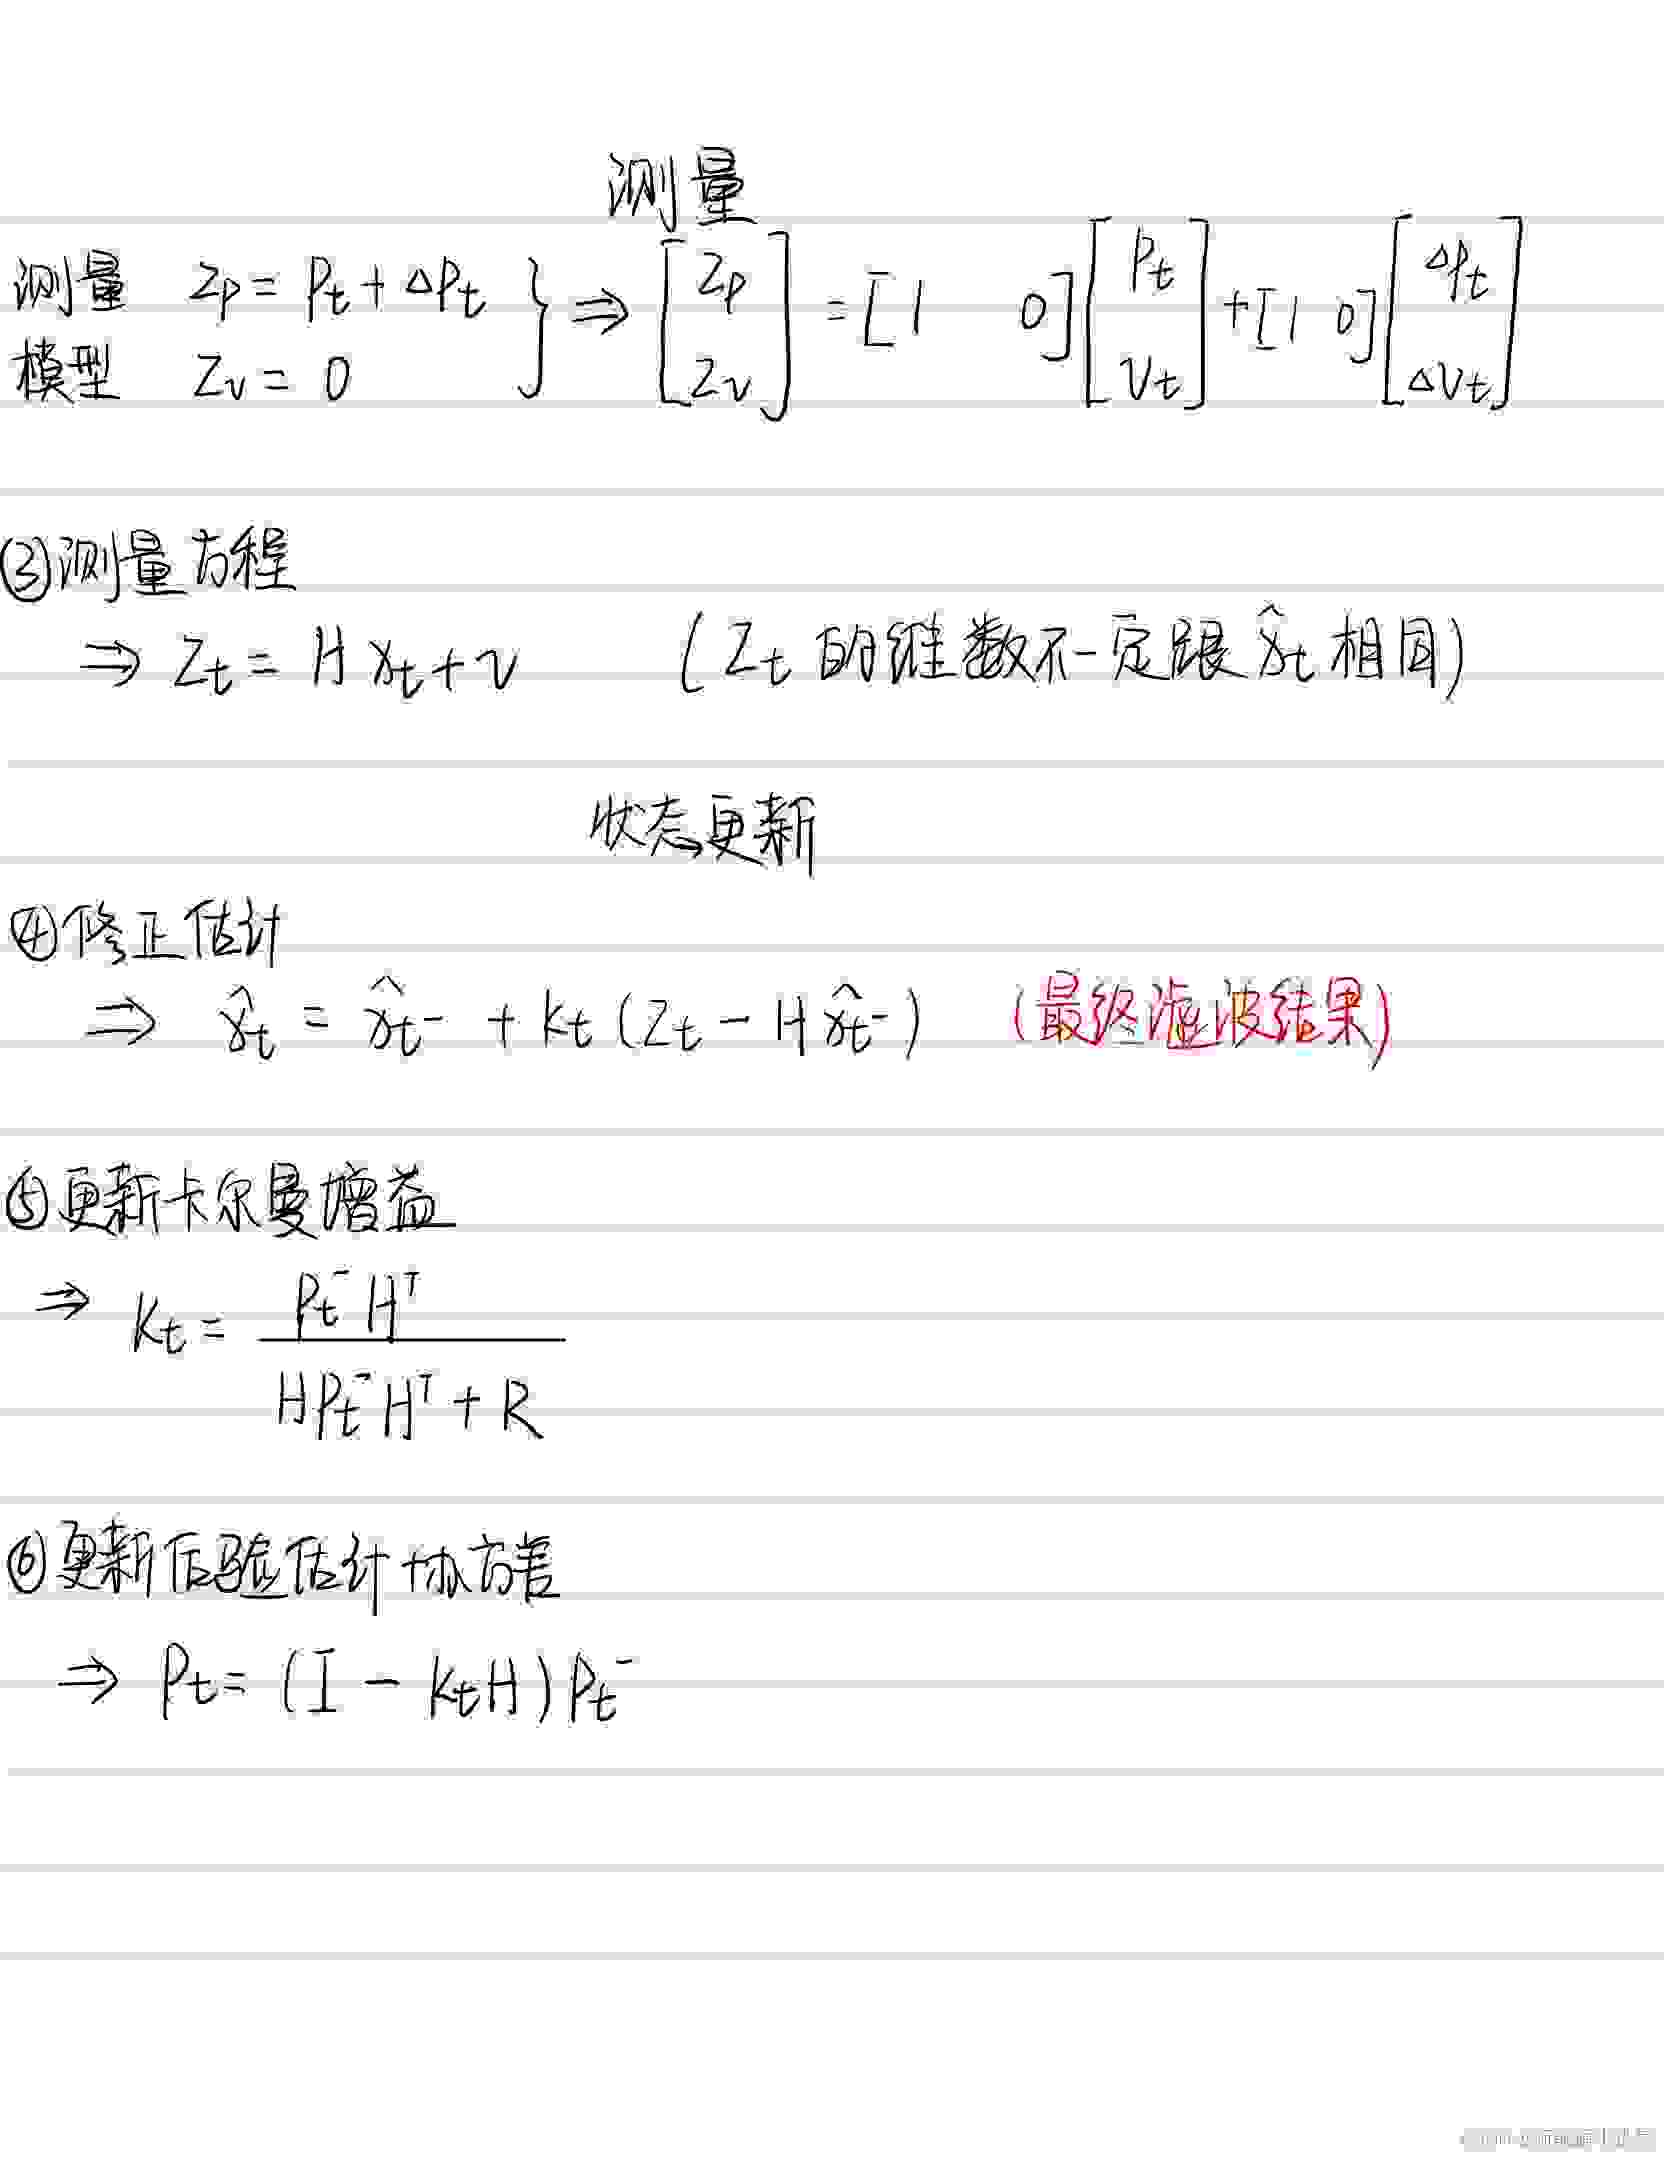 测量
测量 Zp = Pt + ΔPt } ⇒ [Zp Zv] = [1 0][Pt Vt] + [1 0][ΔPt ΔVt]
模型 Zv = 0
③测量方程
⇒ Zt = H xt + v (Zt 的维数不一定跟 x̂t 相同)
状态更新
④修正估计
⇒ x̂t = x̂t⁻ + Kt (Zt − H x̂t⁻) (最终滤波结果)
⑤更新卡尔曼增益
⇒ Kt = Pt⁻ Hᵀ / (H Pt⁻ Hᵀ + R)
⑥更新后验估计协方差
⇒ Pt = (I − Kt H) Pt⁻